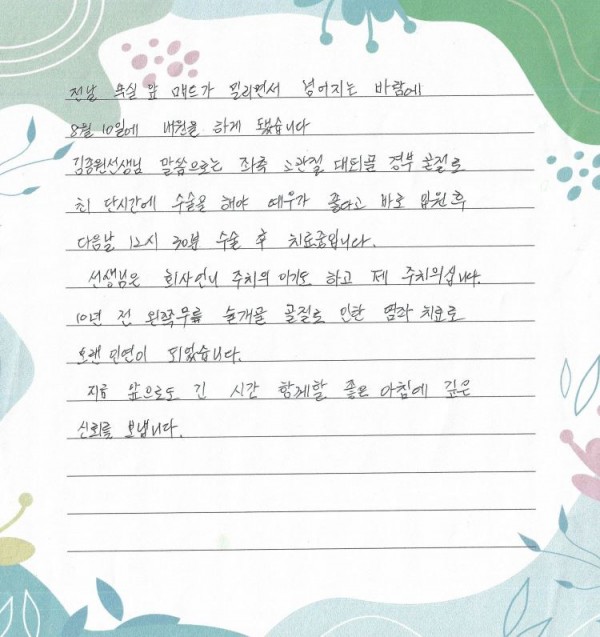 전날 욕실 앞 매트가 밀리면서 넘어지는 바람에
8월 10일에 내원을 하게 됐습니다
김종원선생님 말씀으로는 좌측 고관절 대퇴골 경부 골절로
최 단시간에 수술을 해야 예우가 좋다고 바로 입원 후
다음날 12시 30분 수술 후 치료중입니다.
선생님은 회사언니 주치의 이기도 하고 제 주치의십니다.
10년 전 왼쪽무릎 슬개골 골절로 인한 염좌 치료로
오랜 인연이 되었습니다.
지금 앞으로도 긴 시간 함께할 좋은 아침에 깊은
신뢰를 보냅니다.